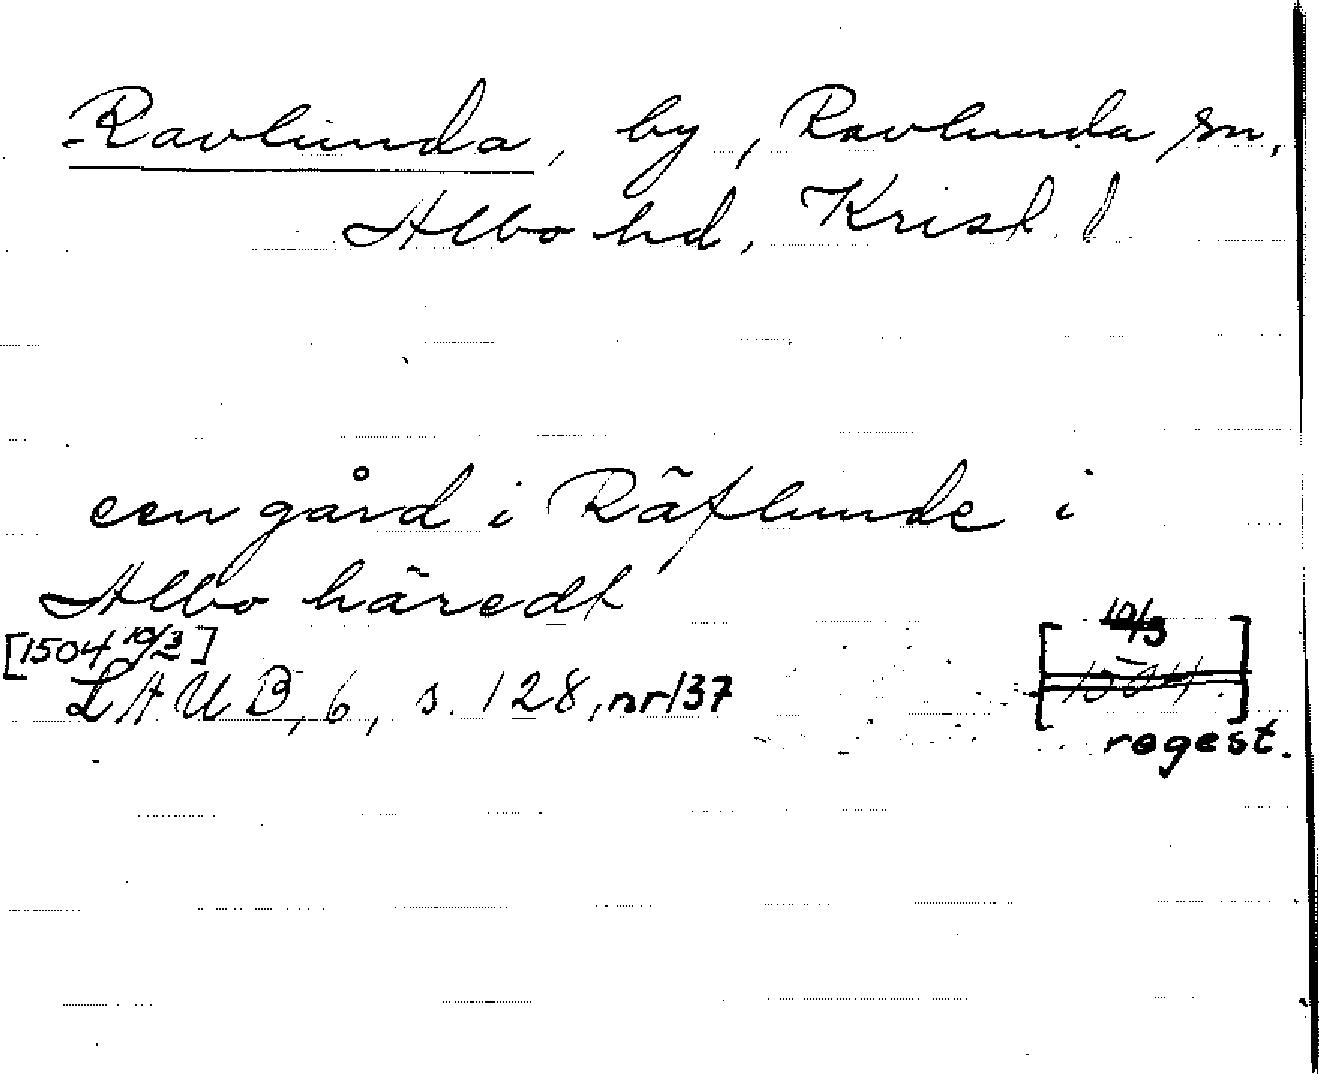 Ravlunda, by, Ravlunda sn,
Albo hd, Krist. l
een gård i Räflunde i
Albo häredt
[1504 10/3]
LÄUB, 6, s. 128, nr 137
[10/3 1504]
regest.